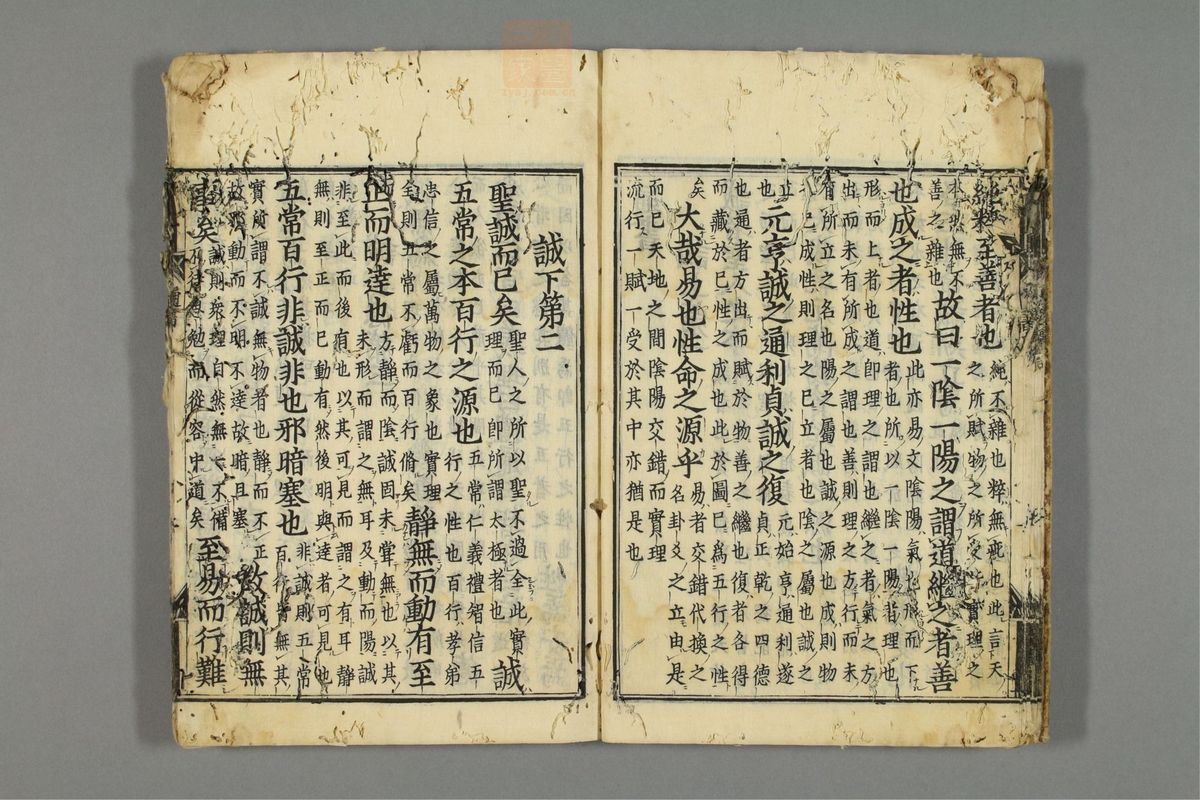 純粹至善者也
純不雜也粹無疵也此言天
之所賦物之所受皆實理之
本然無不
善之雜也
故曰一陰一陽之謂道繼之者善
也成之者性也
此亦易文陰陽氣也形而下
者也所以一陰一陽者理也
形而上者也道即理之謂也繼之者氣之方
出而未有所成之謂也善則理之方行而未
有所立之名也陽之屬也誠之源也成則物
之已成性則理之已立者也陰之屬也誠之
立
也
元亨誠之通利貞誠之復
元始亨通利遂
貞正乾之四德
也通者方出而賦於物善之繼也復者各得
而藏於已性之成也此於圖已為五行之性
矣
大哉易也性命之源乎
易者交錯代換之
名卦爻之立由是
而已天地之間陰陽交錯而實理
流行一賦一受於其中亦猶是也
誠下第二
聖誠而已矣
聖人之所以聖不過全此實
理而已即所謂太極者也
誠
五常之本百行之源也
五常仁義禮智信五
行之性也百行孝弟
忠信之屬萬物之象也實理
全則五常不虧而百行脩矣
靜無而動有至
正而明達也
方靜而陰誠固未嘗無也以其
未形而謂之無耳及動而陽誠
非至此而後有也以其可見而謂之有耳靜
無則至正而已動有然後明與達者可見也
五常百行非誠非也邪暗塞也
非誠則五常
百行皆無其
實所謂不誠無物者也靜而不正
故邪動而不明不達故暗且塞
故誠則無
事矣
誠則衆理自然無一不備
不待思勉而從容中道矣
至易而行難